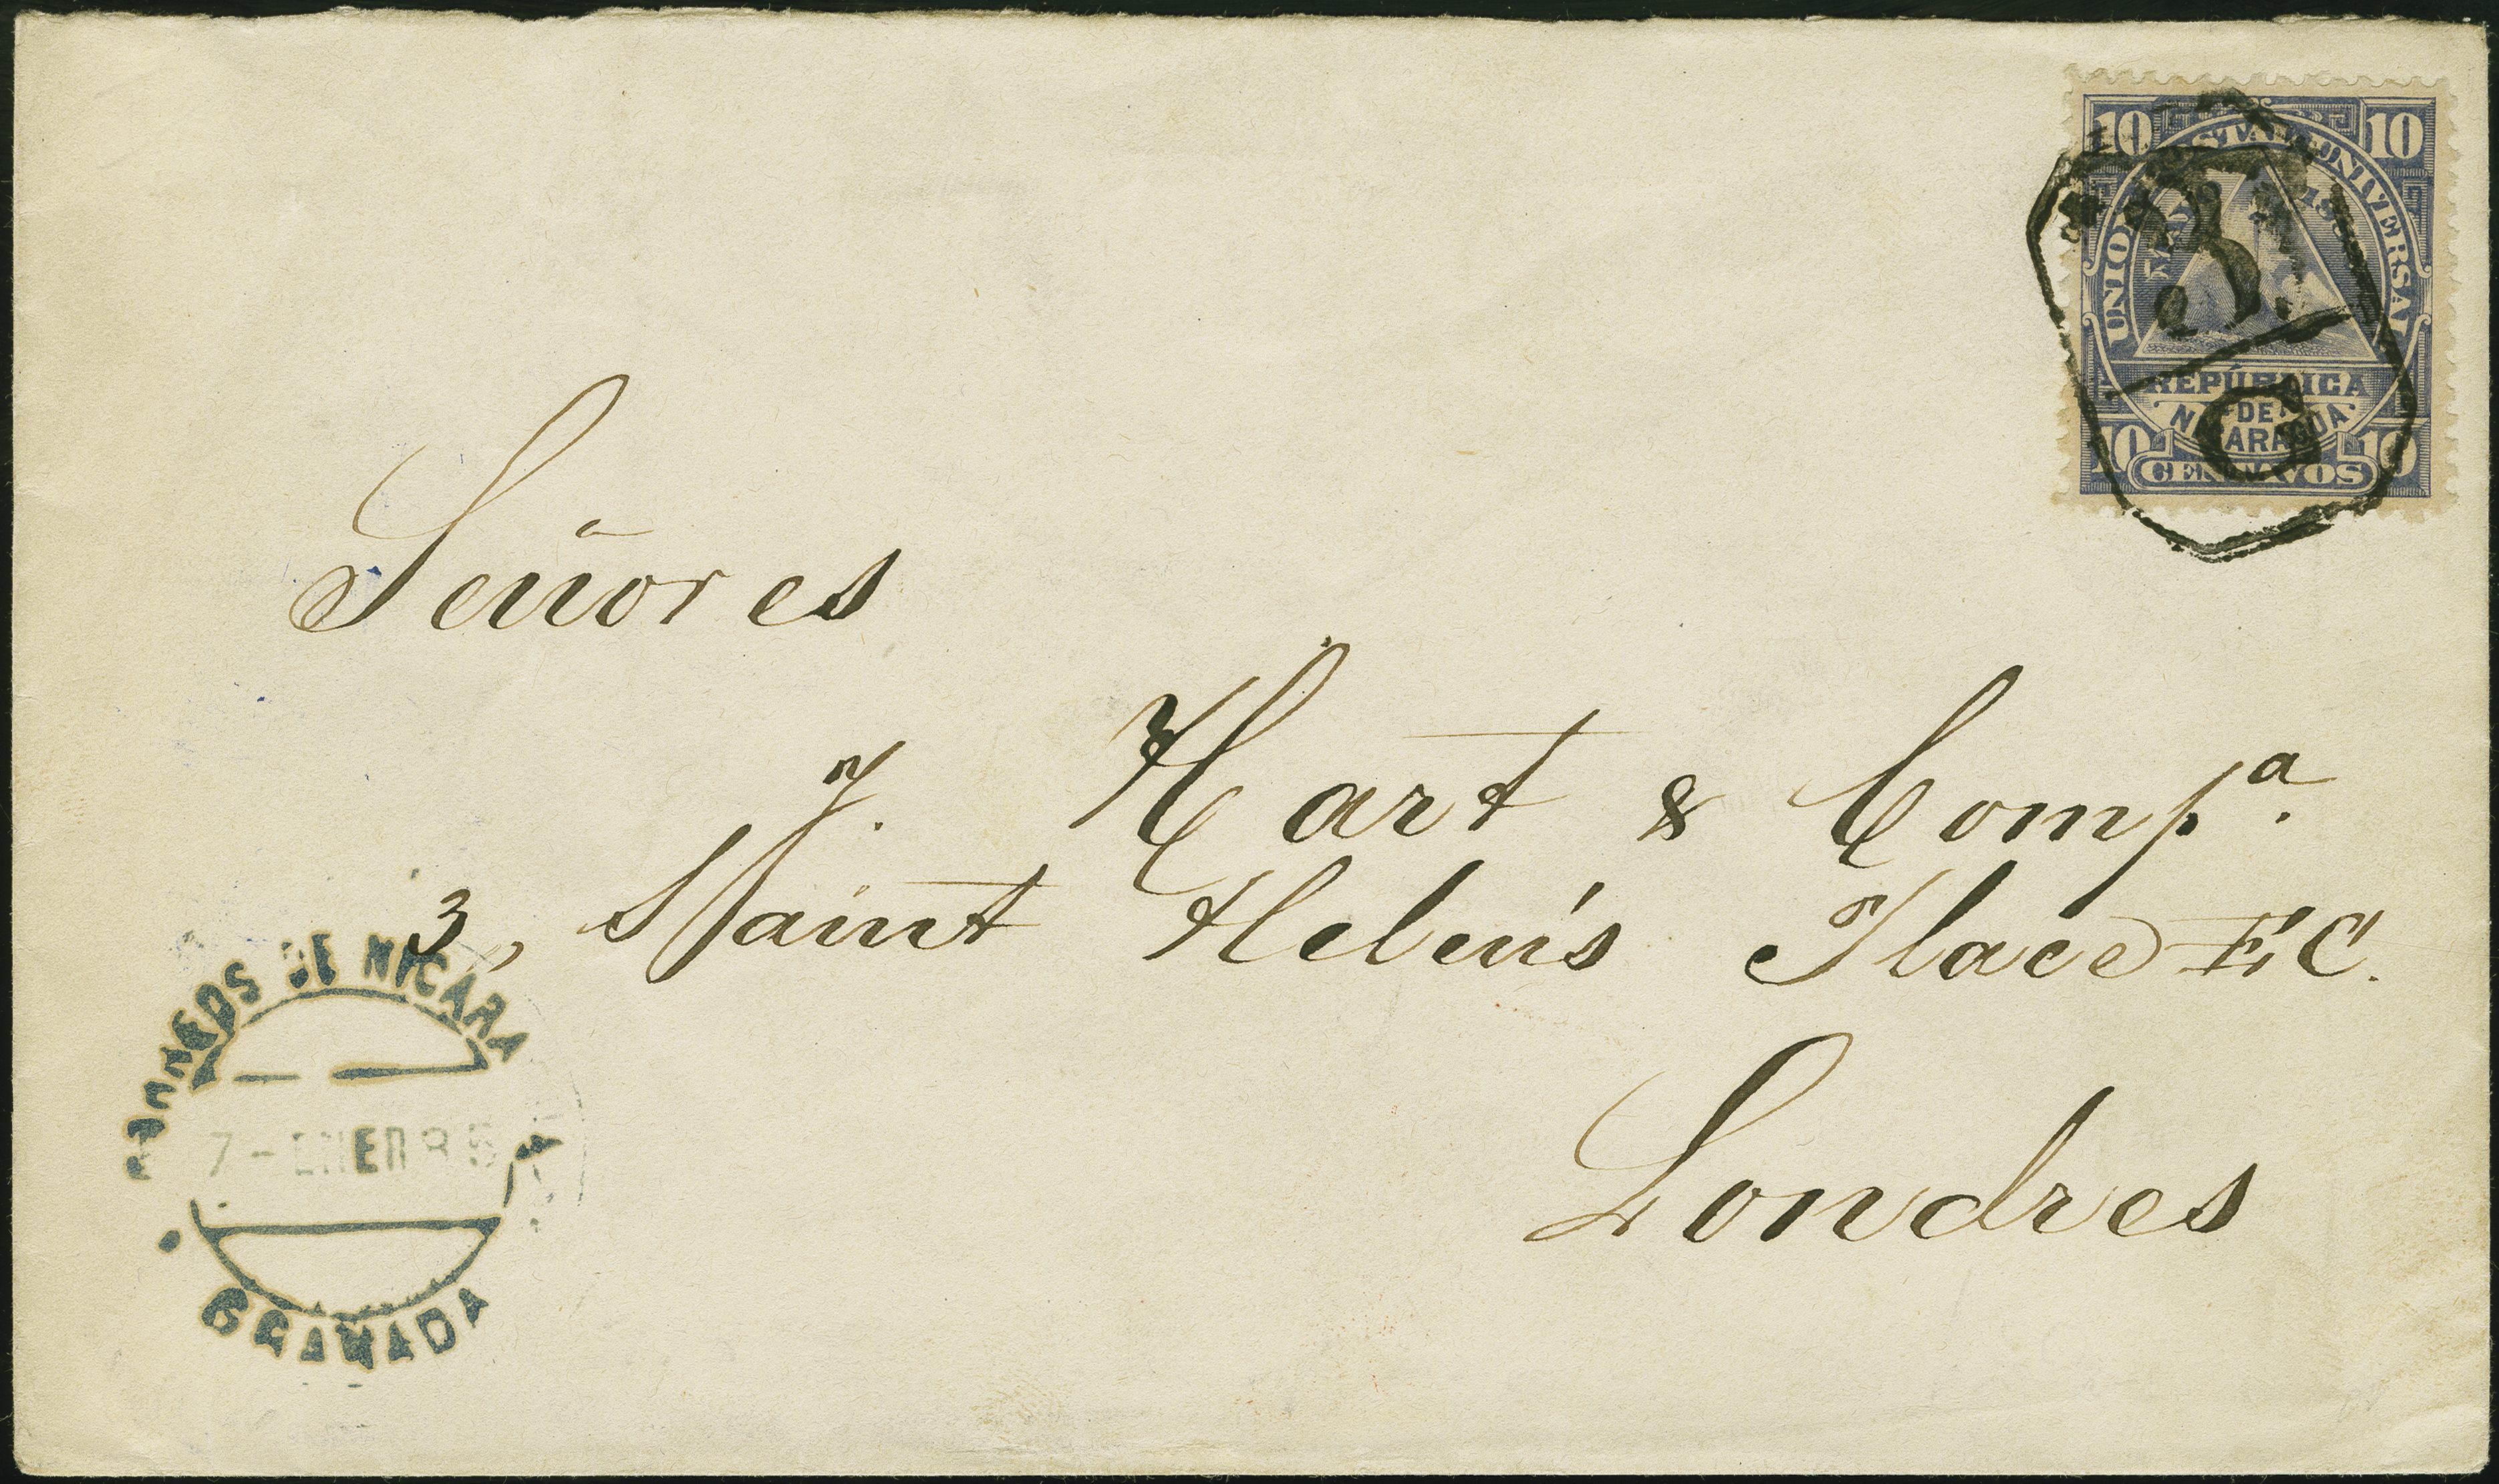 10 10
UNION POSTAL UNIVERSAL
MAYO 188
REPÚBLICA
DE
NICARAGUA
10 10
CENTAVOS
B.
C
Señores
J. Hart & Compª.
3, Saint Helen's Place E C.
Londres
CORREOS DE NICARAGUA
7-ENERO 85
GRANADA